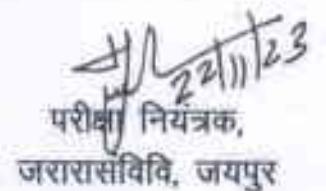 22/11/23
परीक्षा नियंत्रक,
जरारासंविवि, जयपुर